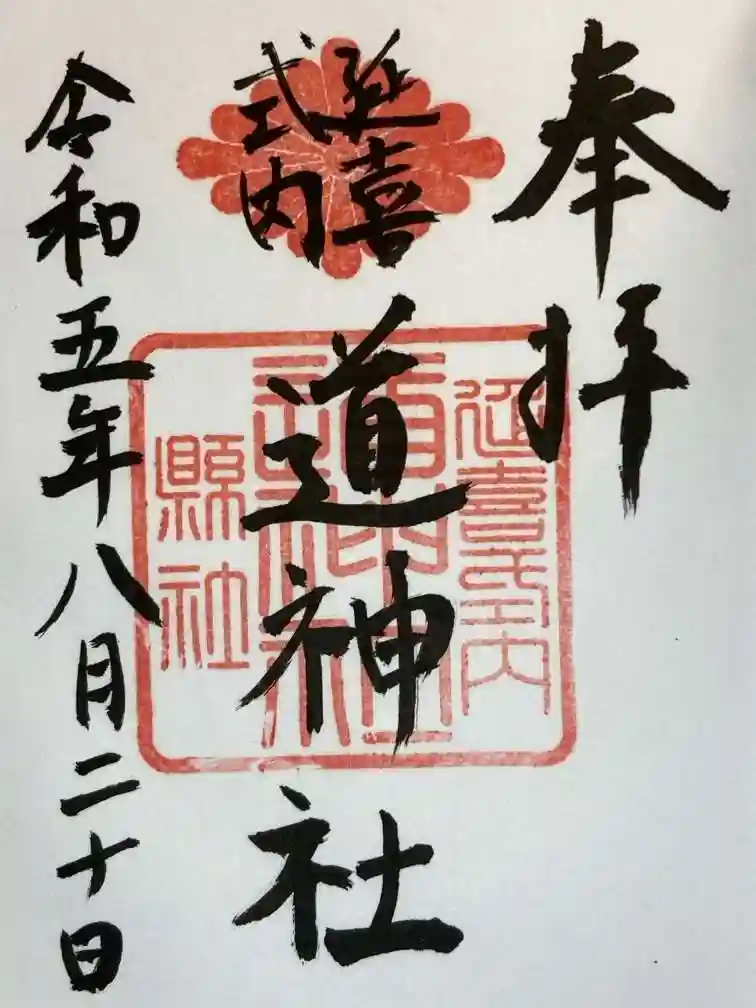 奉拝
延喜
式内
道神社
延喜式内
道神社
縣社
令和五年八月二十日